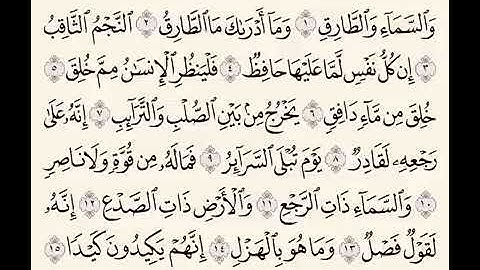 وَٱلسَّمَآءِ وَٱلطَّارِقِ ١ وَمَآ أَدْرَىٰكَ مَا ٱلطَّارِقُ ٢ ٱلنَّجْمُ ٱلثَّاقِبُ
٣ إِن كُلُّ نَفْسٍ لَّمَّا عَلَيْهَا حَافِظٌ ٤ فَلْيَنظُرِ ٱلْإِنسَٰنُ مِمَّ خُلِقَ ٥
خُلِقَ مِن مَّآءٍ دَافِقٍ ٦ يَخْرُجُ مِنۢ بَيْنِ ٱلصُّلْبِ وَٱلتَّرَآئِبِ ٧ إِنَّهُۥ عَلَىٰ
رَجْعِهِۦ لَقَادِرٌ ٨ يَوْمَ تُبْلَى ٱلسَّرَآئِرُ ٩ فَمَا لَهُۥ مِن قُوَّةٍ وَلَا نَاصِرٍ
١٠ وَٱلسَّمَآءِ ذَاتِ ٱلرَّجْعِ ١١ وَٱلْأَرْضِ ذَاتِ ٱلصَّدْعِ ١٢ إِنَّهُۥ
لَقَوْلٌ فَصْلٌ ١٣ وَمَا هُوَ بِٱلْهَزْلِ ١٤ إِنَّهُمْ يَكِيدُونَ كَيْدًا ١٥